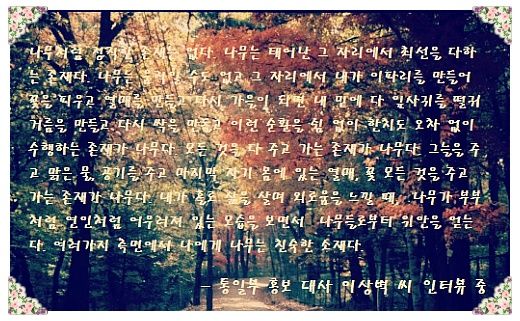 나무처럼 정직한 존재는 없다. 나무는 태어난 그 자리에서 최선을 다하
는 존재다. 나무는 움직일 수도 없고 그 자리에서 내가 이파리를 만들어
꽃을 피우고 열매를 만들고 다시 가을이 되면 내 밑에 다 잎사귀를 떨궈
거름을 만들고 다시 싹을 만들고 이런 순환을 쉼 없이 한치도 오차 없이
수행하는 존재가 나무다. 모든 것을 다 주고 가는 존재가 나무다. 그늘을 주
고 맑은 물, 공기를 주고 마지막 자기 몸에 있는 열매, 꽃 모든 것을 주고
가는 존재가 나무다. 내가 홀로 삶을 살며 외로움을 느낄 때, 나무가 부부
처럼 연인처럼 어우러져 있는 모습을 보면서 나무들로부터 위안을 얻는
다. 여러가지 측면에서 나에게 나무는 친숙한 소재다.
- 통일부 홍보 대사 이상벽 씨 인터뷰 중